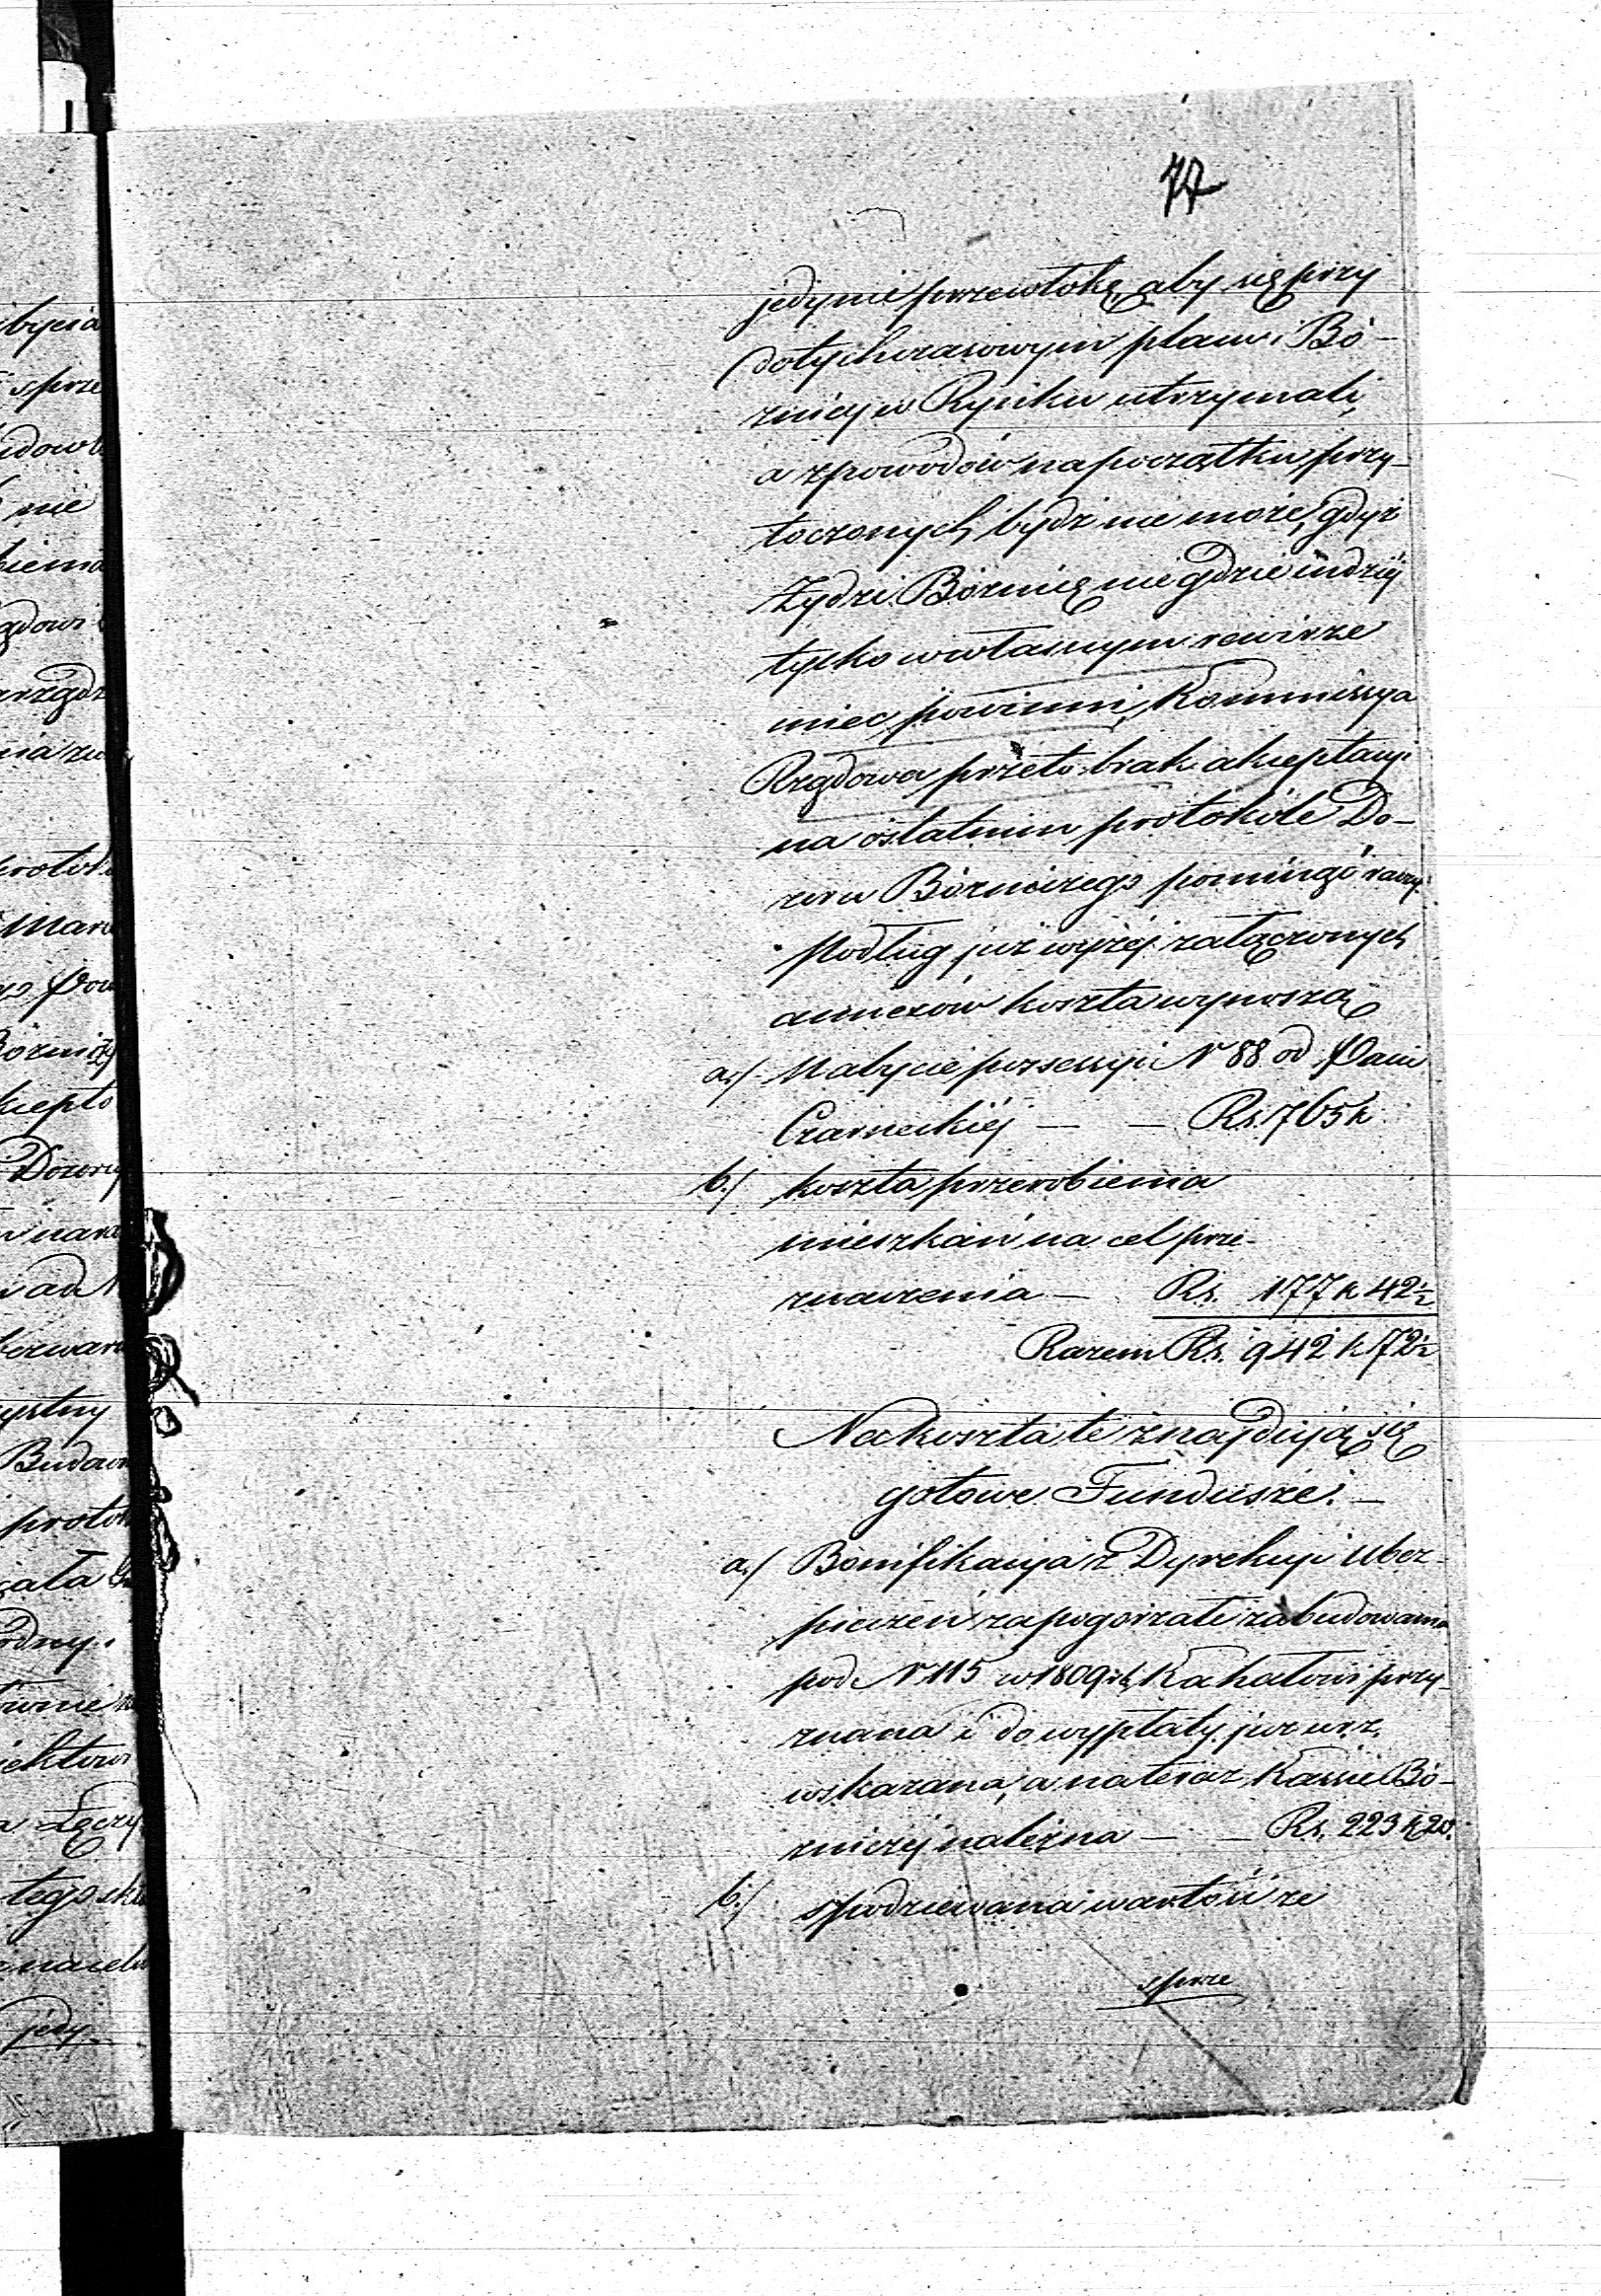 77
jedynie przewłokę, aby się przy
dotychczasowym placu i Bó-
żnicy w Rynku utrzymali,
a z powodów na początku przy-
toczonych bydź nie może, gdyż
Żydzi Bóżnię nie gdzie indziéj
tylko w własnym rewirze
mieć powinni, Kommissya
Rządowa przeto brak akceptacyi
na ostatnim protokóle Do-
zoru Bóżniczego pominąć raczy.
Podług już wyżéj załączonych
annexów koszta wynoszą
a./ Nabycie possessyi N 88 od Pani
Czarneckiéj — — Rs. 765 k
b./ koszta przerobienia
mieszkań na cel prze-
znaczenia — Rs. 177 k 42½
Razem Rs. 942 k 72½
Na koszta te znajdują się
gotowe Fundusze. —
a./ Bonifikacya z Dyrekcyi Ubez-
pieczeń za pogorzałe zabudowania
pod N 115 w 1809 r. Kahałowi przy-
znana i do wypłaty już
wskazana, a na teraz Kassie Bó-
żniczéj należna — — Rs. 223 k 20.
b./ spodziewana wartość ze
sprze
bycia
sprze
nie
protok
Mar
Dozoru
ystny
Budow
protok
Łęczy
tego
jedy-